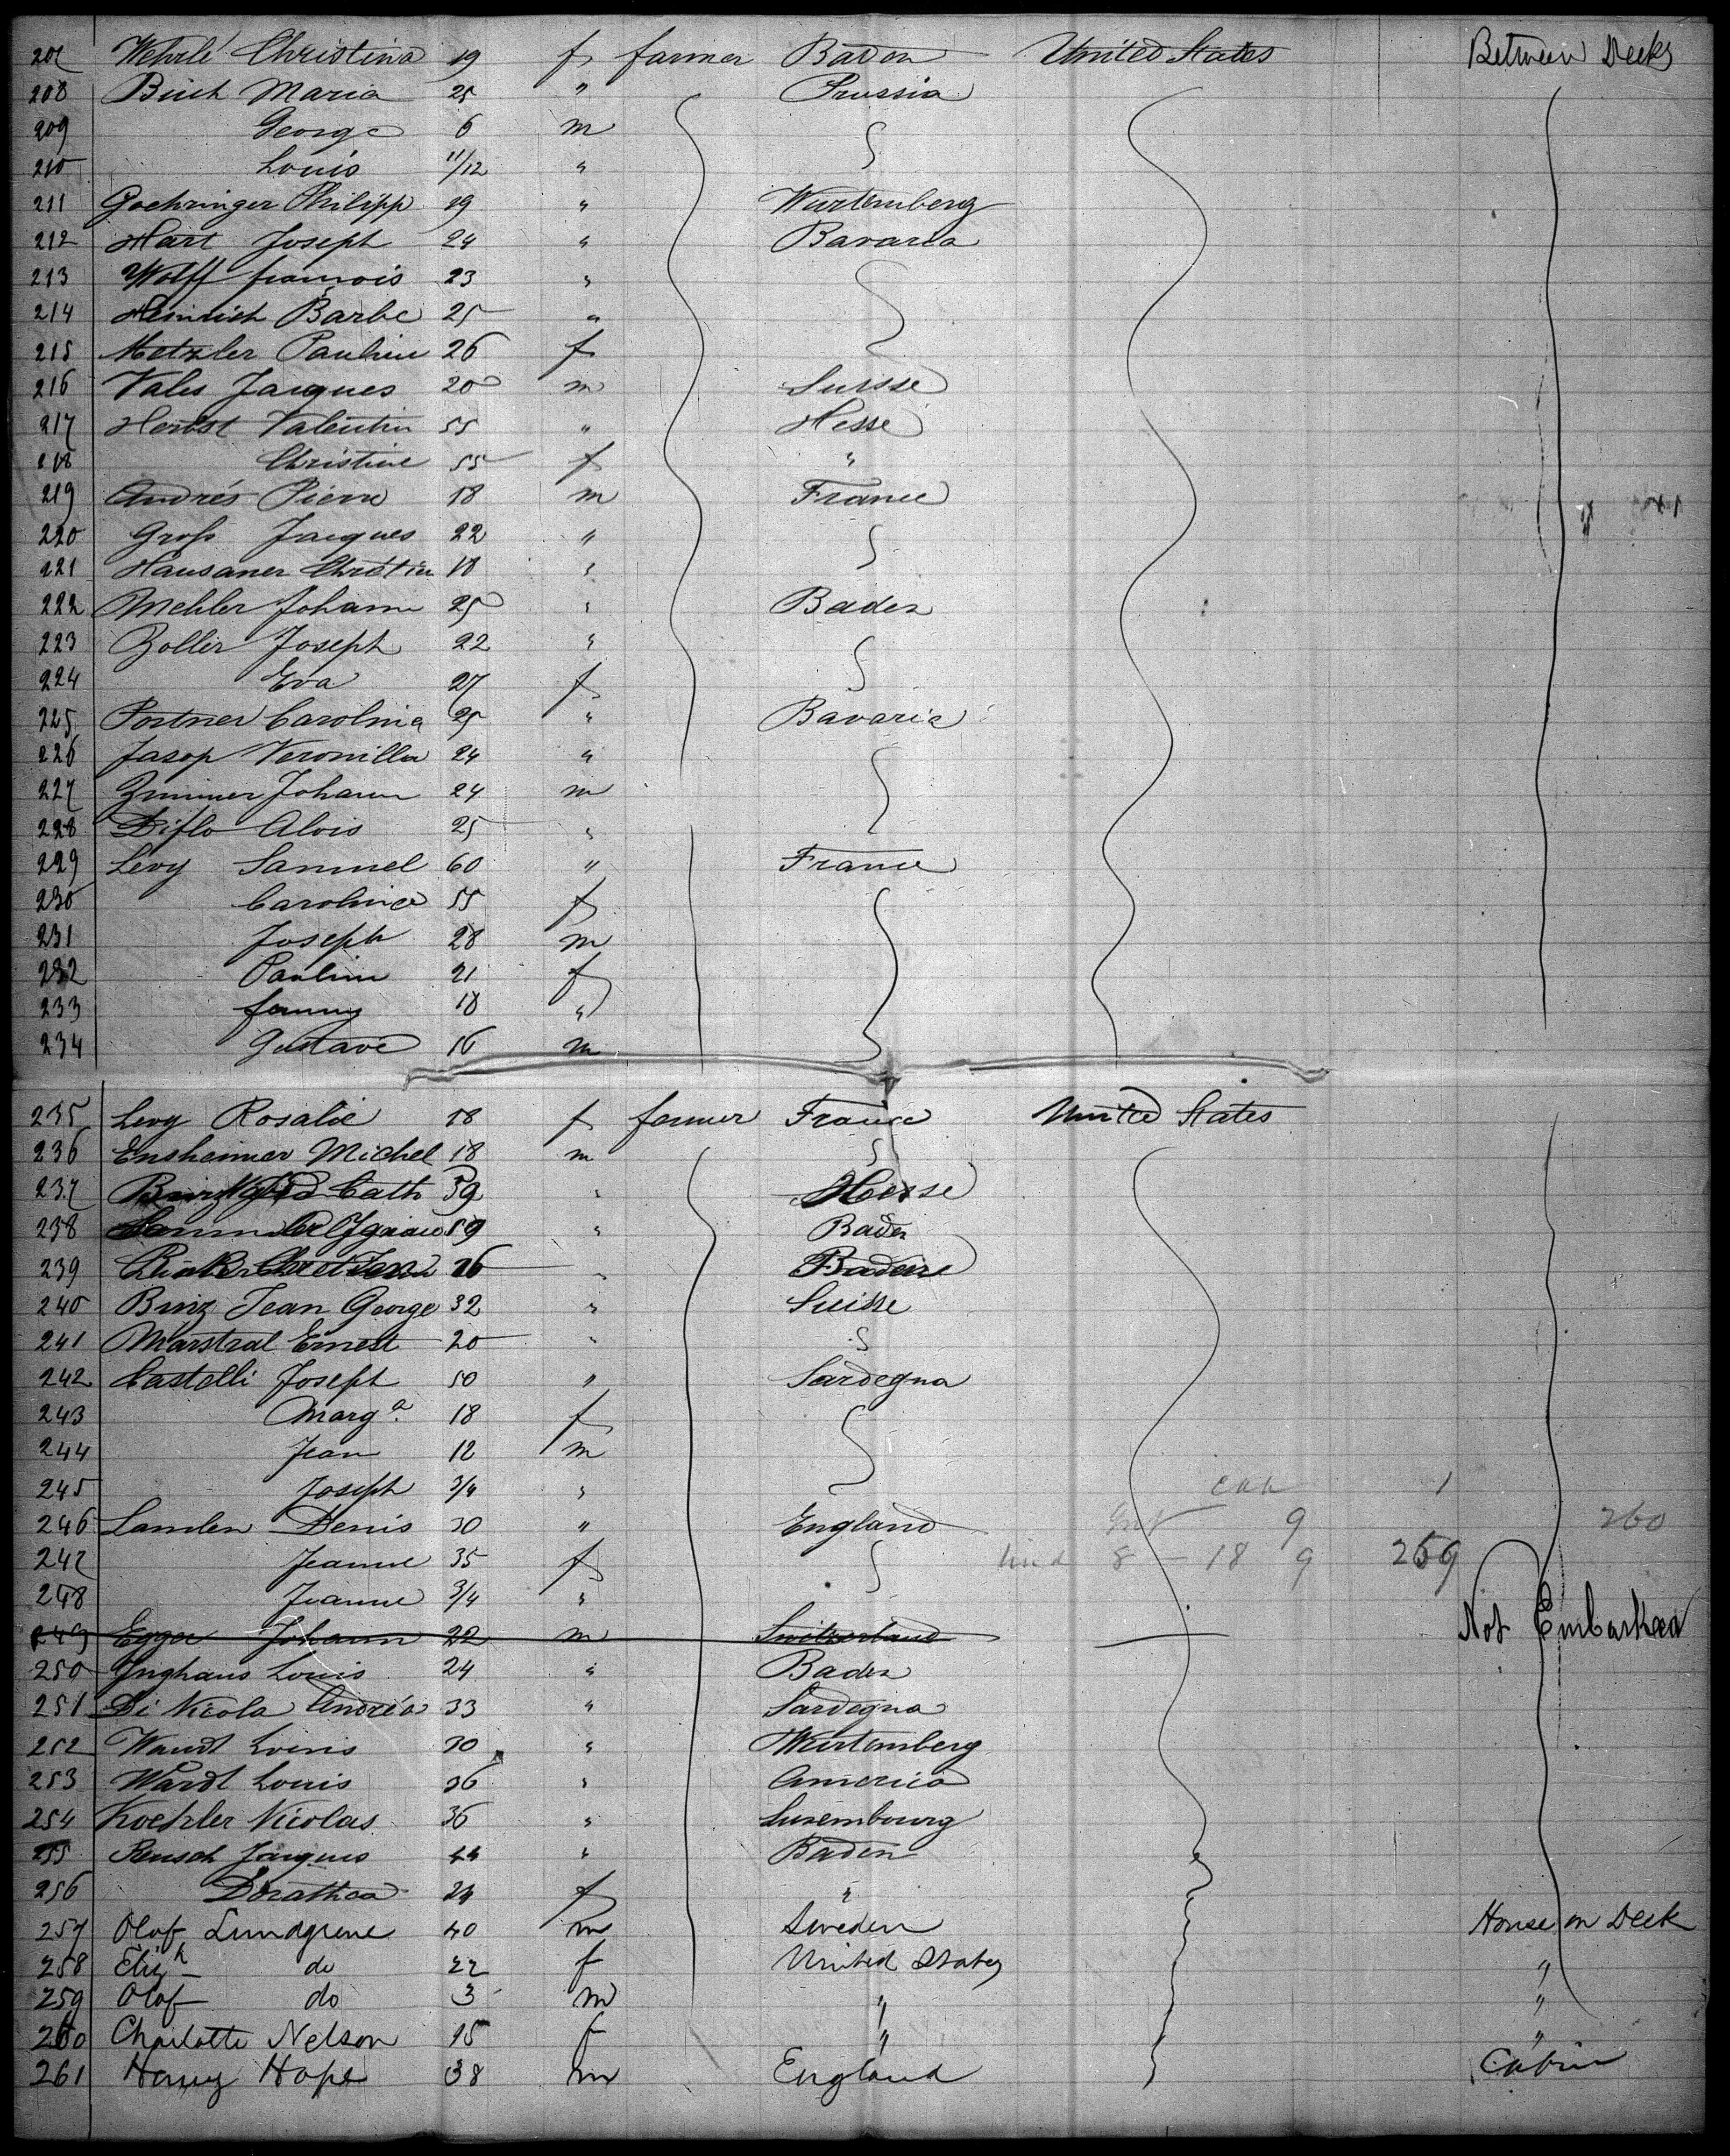 207 Wehrlé Christina 19 f farmer Baden United States Between Decks
208 Maria 25 " Prussia
209 George 6 m
210 Louis 11/12 "
211 Goehringer Philipp 29 " Wurtemberg
212 Hart Joseph 24 " Bavaria
213 Wolff francois 23 "
214 Heinrich Barbe 25 "
215 Metzler Pauline 26 f
216 Jacques 20 m Suisse
217 Herbst Valentin 55 " Hesse
218 Christine 55 f "
219 Andrés Pierre 18 m France
220 Groß Jacques 22 "
221 Hausaner Chrétien 18 "
222 Mehler Johann 25 " Baden
223 Zoller Joseph 22 "
224 Eva 27 f
225 Portner Carolina 25 " Bavaria
226 24 "
227 Zimmer Johann 24 m
228 Diflo Alois 25 "
229 Levy Samuel 60 " France
230 Carolina 55 f
231 Joseph 28 m
232 Paulina 21 f
233 fanny 18 "
234 Gustave 16 m
235 Levy Rosalie 18 f farmer France United States
236 Ensheimer Michel 18 m
237 Cath 59 " Hesse
238 59 " Baden
239 26 " Baden
240 Jean George 32 " Suisse
241 Marstral Ernest 20 "
242 Castelli Joseph 50 " Sardegna
243 Marg.a 18 f
244 Jean 12 m
245 Joseph 3/4 "
246 Denis 30 " England 9 260
247 Jeanne 35 f 8 - 18 9 259
248 Jeanne 3/4 "
249 Egger Johann 22 m Switzerland Not Embarked
250 Louis 24 " Baden
251 Di Nicola Andréa 33 " Sardegna
252 Wandt Louis 30 " Wurtemberg
253 Wardt Louis 36 " America
254 Koehler Nicolas 36 " Luxembourg
255 Jacques 44 " Baden
256 Dorathea 24 f "
257 Olof Lundgrene 40 m Sweden House on Deck
258 Eliz h do 22 f United States "
259 Olof do 3 m " "
260 Charlotte Nelson 15 f " "
261 Hope 38 m England Cabin